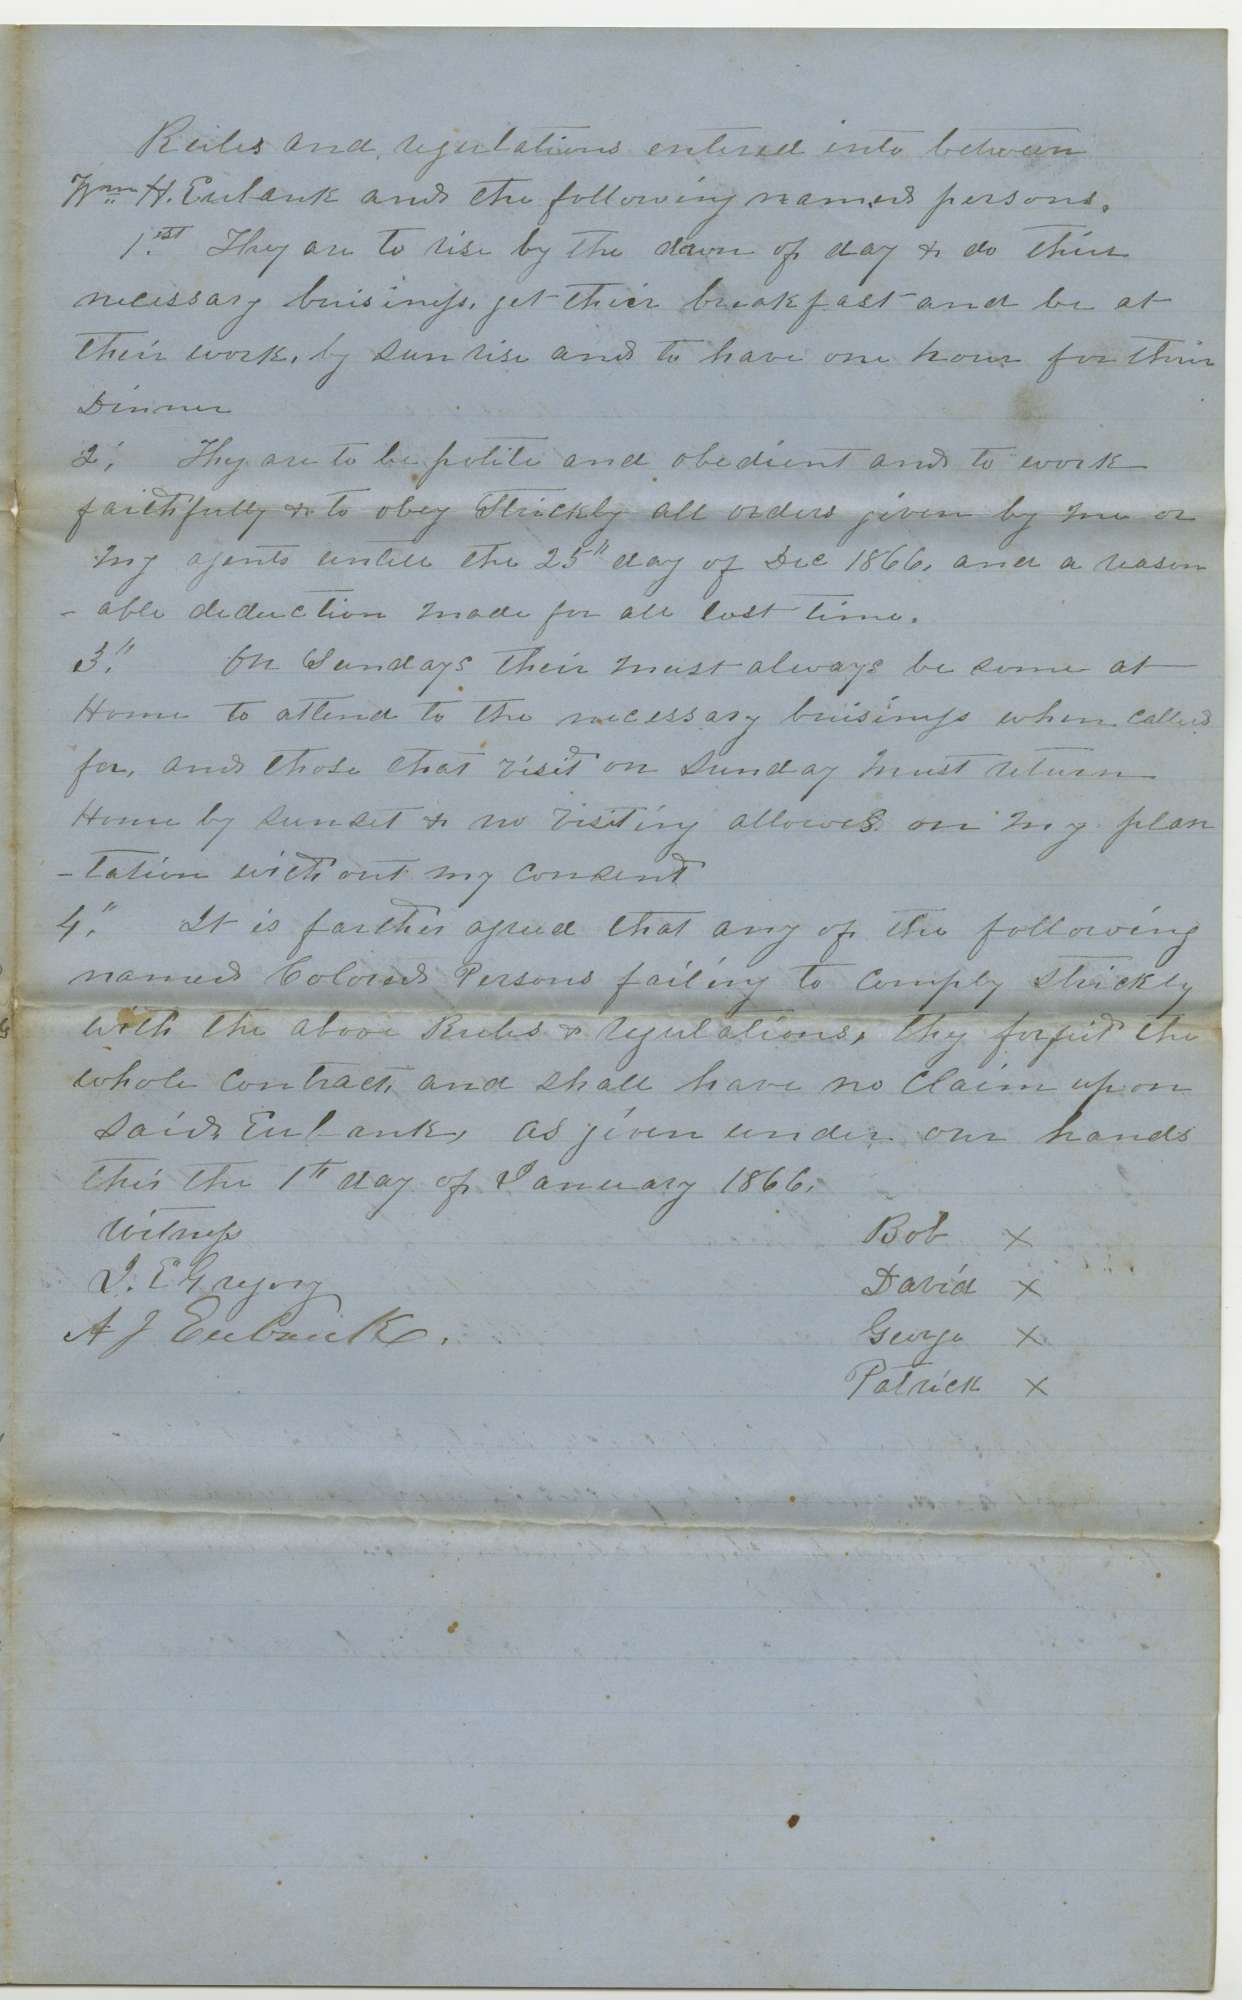 Rules and regulations entered into between
Wm H. Eubank and the following named persons.
1.st They are to rise by the dawn of day & do their
necessary buisiness, get their breakfast and be at
their work, by sun rise and to have one hour for their
Dinner
2, They are to be polite and obedient and to work
faithfully & to obey Strickly all orders given by me or
my agents untill the 25" day of Dec 1866, and a reason
- able deduction made for all lost time.
3." On Sundays their must always be some at
Home to attend to the necessary buisiness when called
for, and those that visit on Sunday must return
Home by sunset & no visiting allowed on my plan
- tation without my consent
4." It is farther agreed that any of the following
named Colored Persons failing to comply strickly
with the above Rules & regulations, they forfeit the
whole contract, and shall have no claim upon
said Eubank, as given under our hands
this the 1st day of January 1866.
Witness
J. E Gregory
A J Eubank.
Bob X
David X
George X
Patrick X